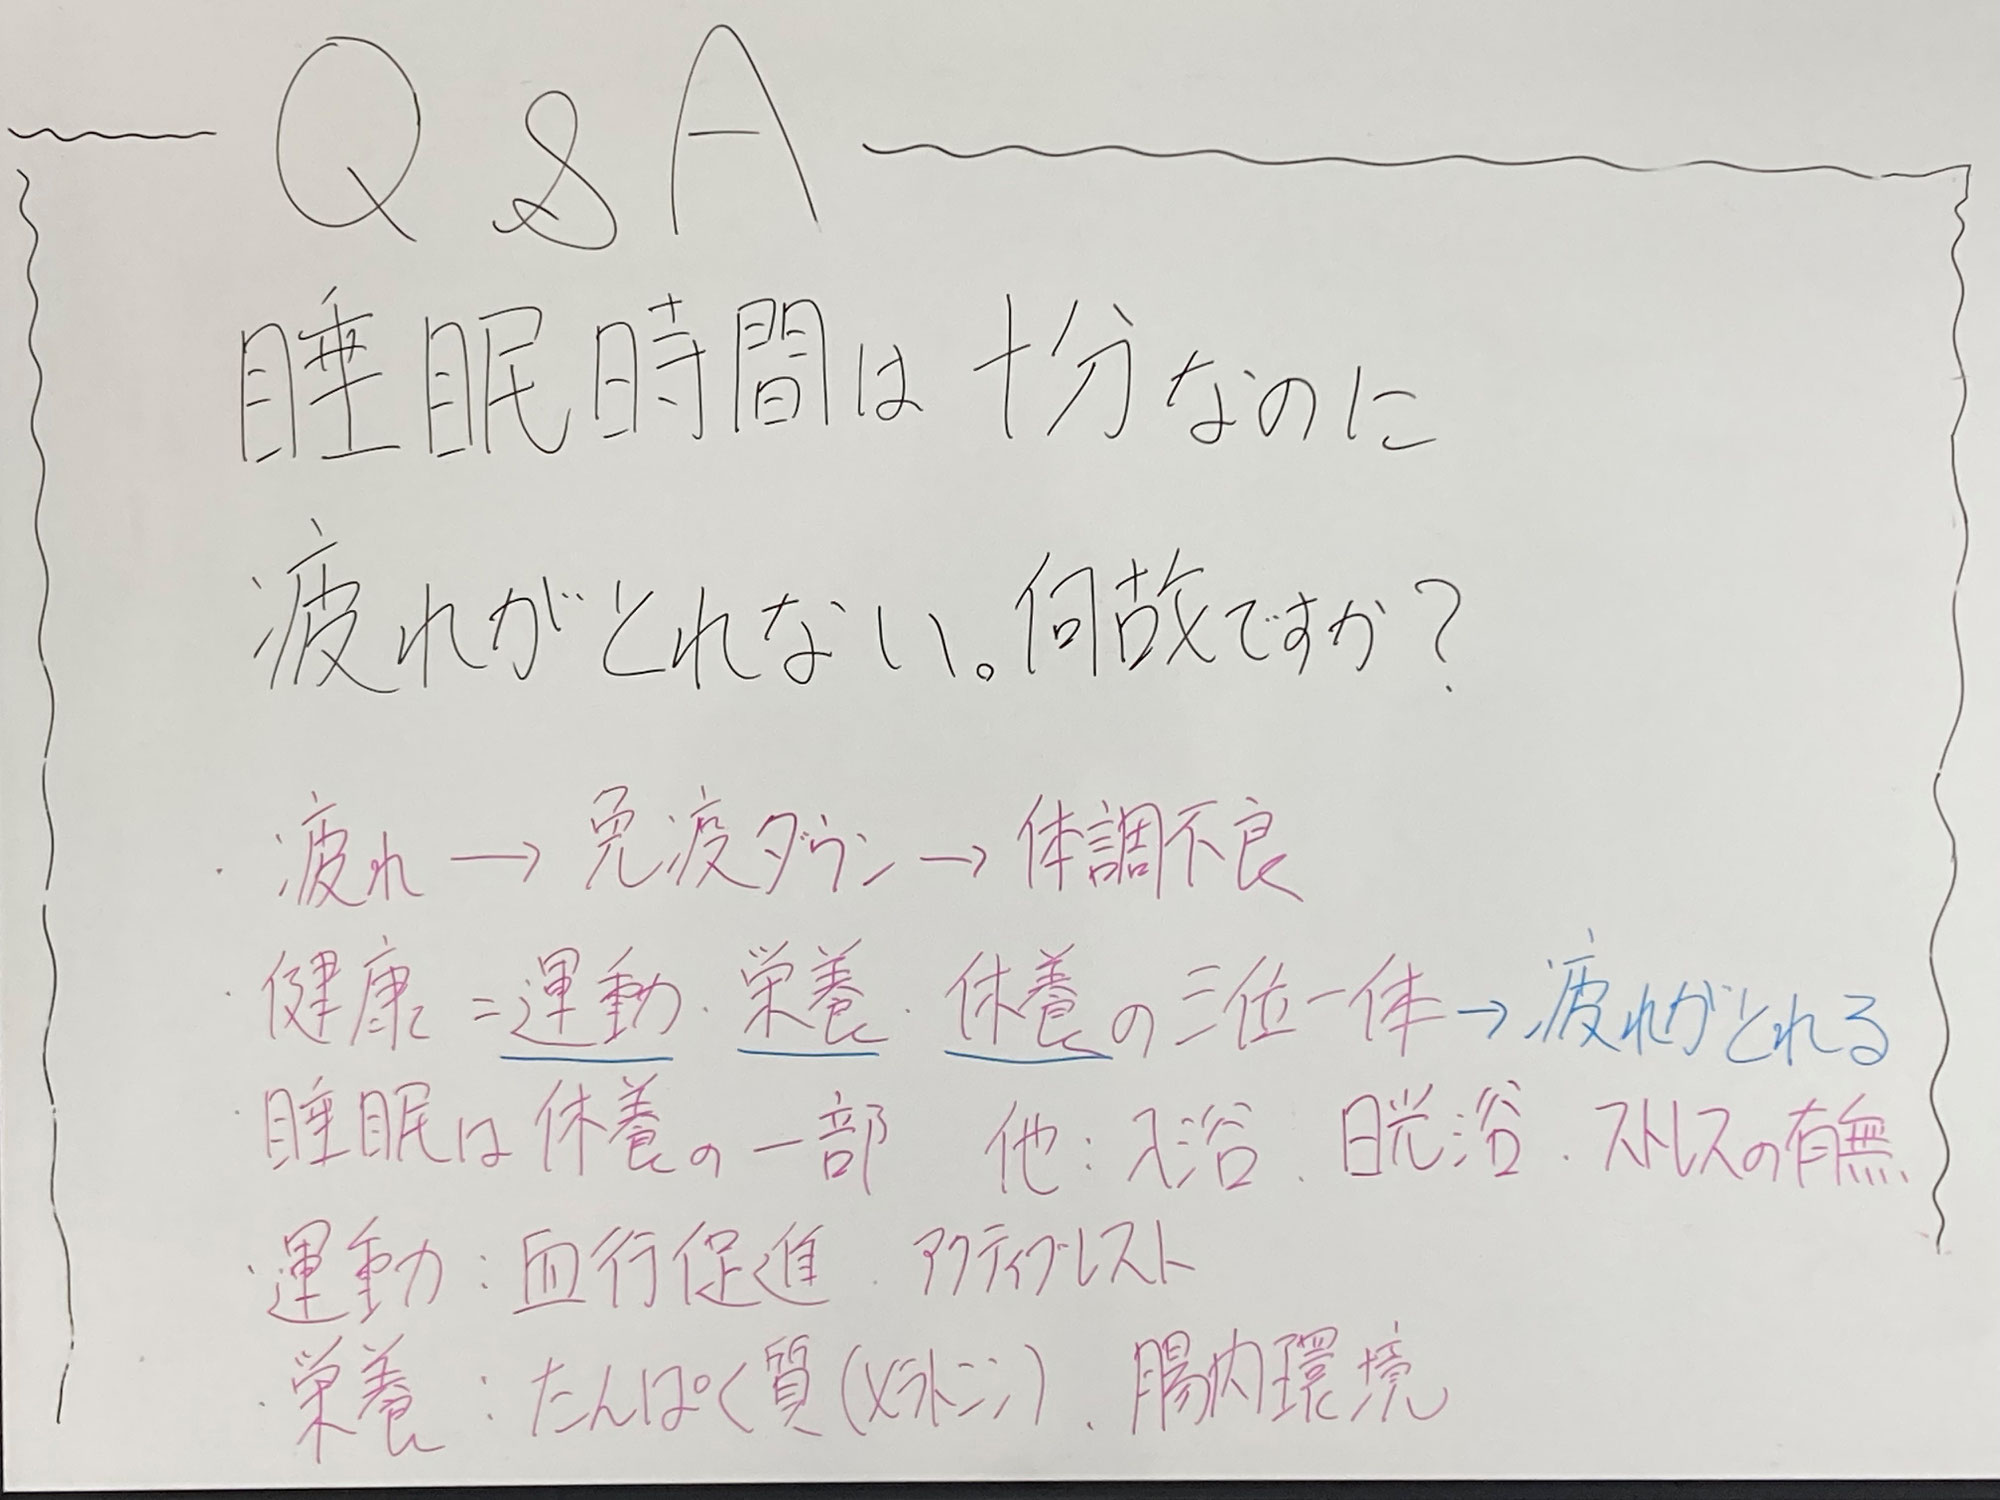 Q & A
睡眠時間は十分なのに
疲れがとれない。何故ですか？
・疲れ→免疫ダウン→体調不良
・健康=運動・栄養・休養の三位一体→疲れがとれる
・睡眠は休養の一部 他:入浴、日光浴、ストレスの有無
・運動:血行促進、アクティブレスト
・栄養:たんぱく質(メラトニン)、腸内環境